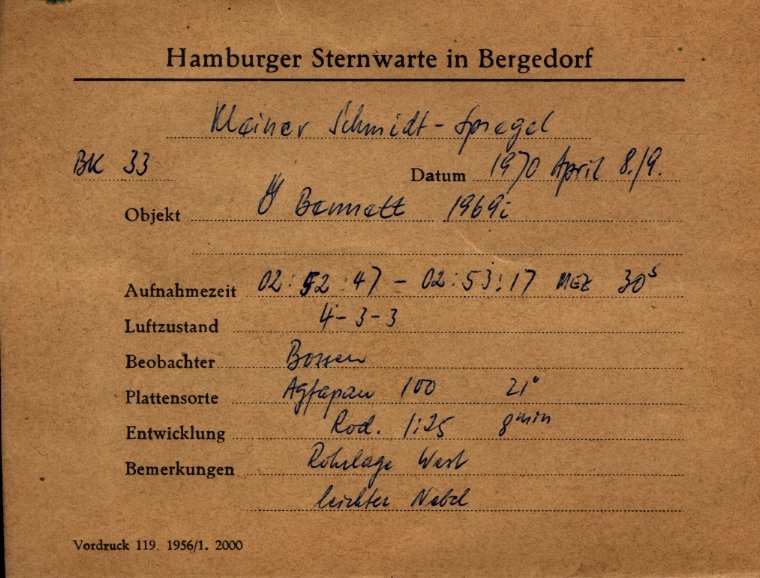 Hamburger Sternwarte in Bergedorf
Kleiner Schmidt-Spiegel
BK 33 Datum 1970 April 8./9.
Objekt ☄ Bennett 1969i
Aufnahmezeit 02:52:47 - 02:53:17 MEZ 30s
Luftzustand 4-3-3
Beobachter Bossen
Plattensorte Agfapan 100 21°
Entwicklung Rod. 1:25 8 min
Bemerkungen Rohrlage West
leichter Nebel
Vordruck 119. 1956/1. 2000